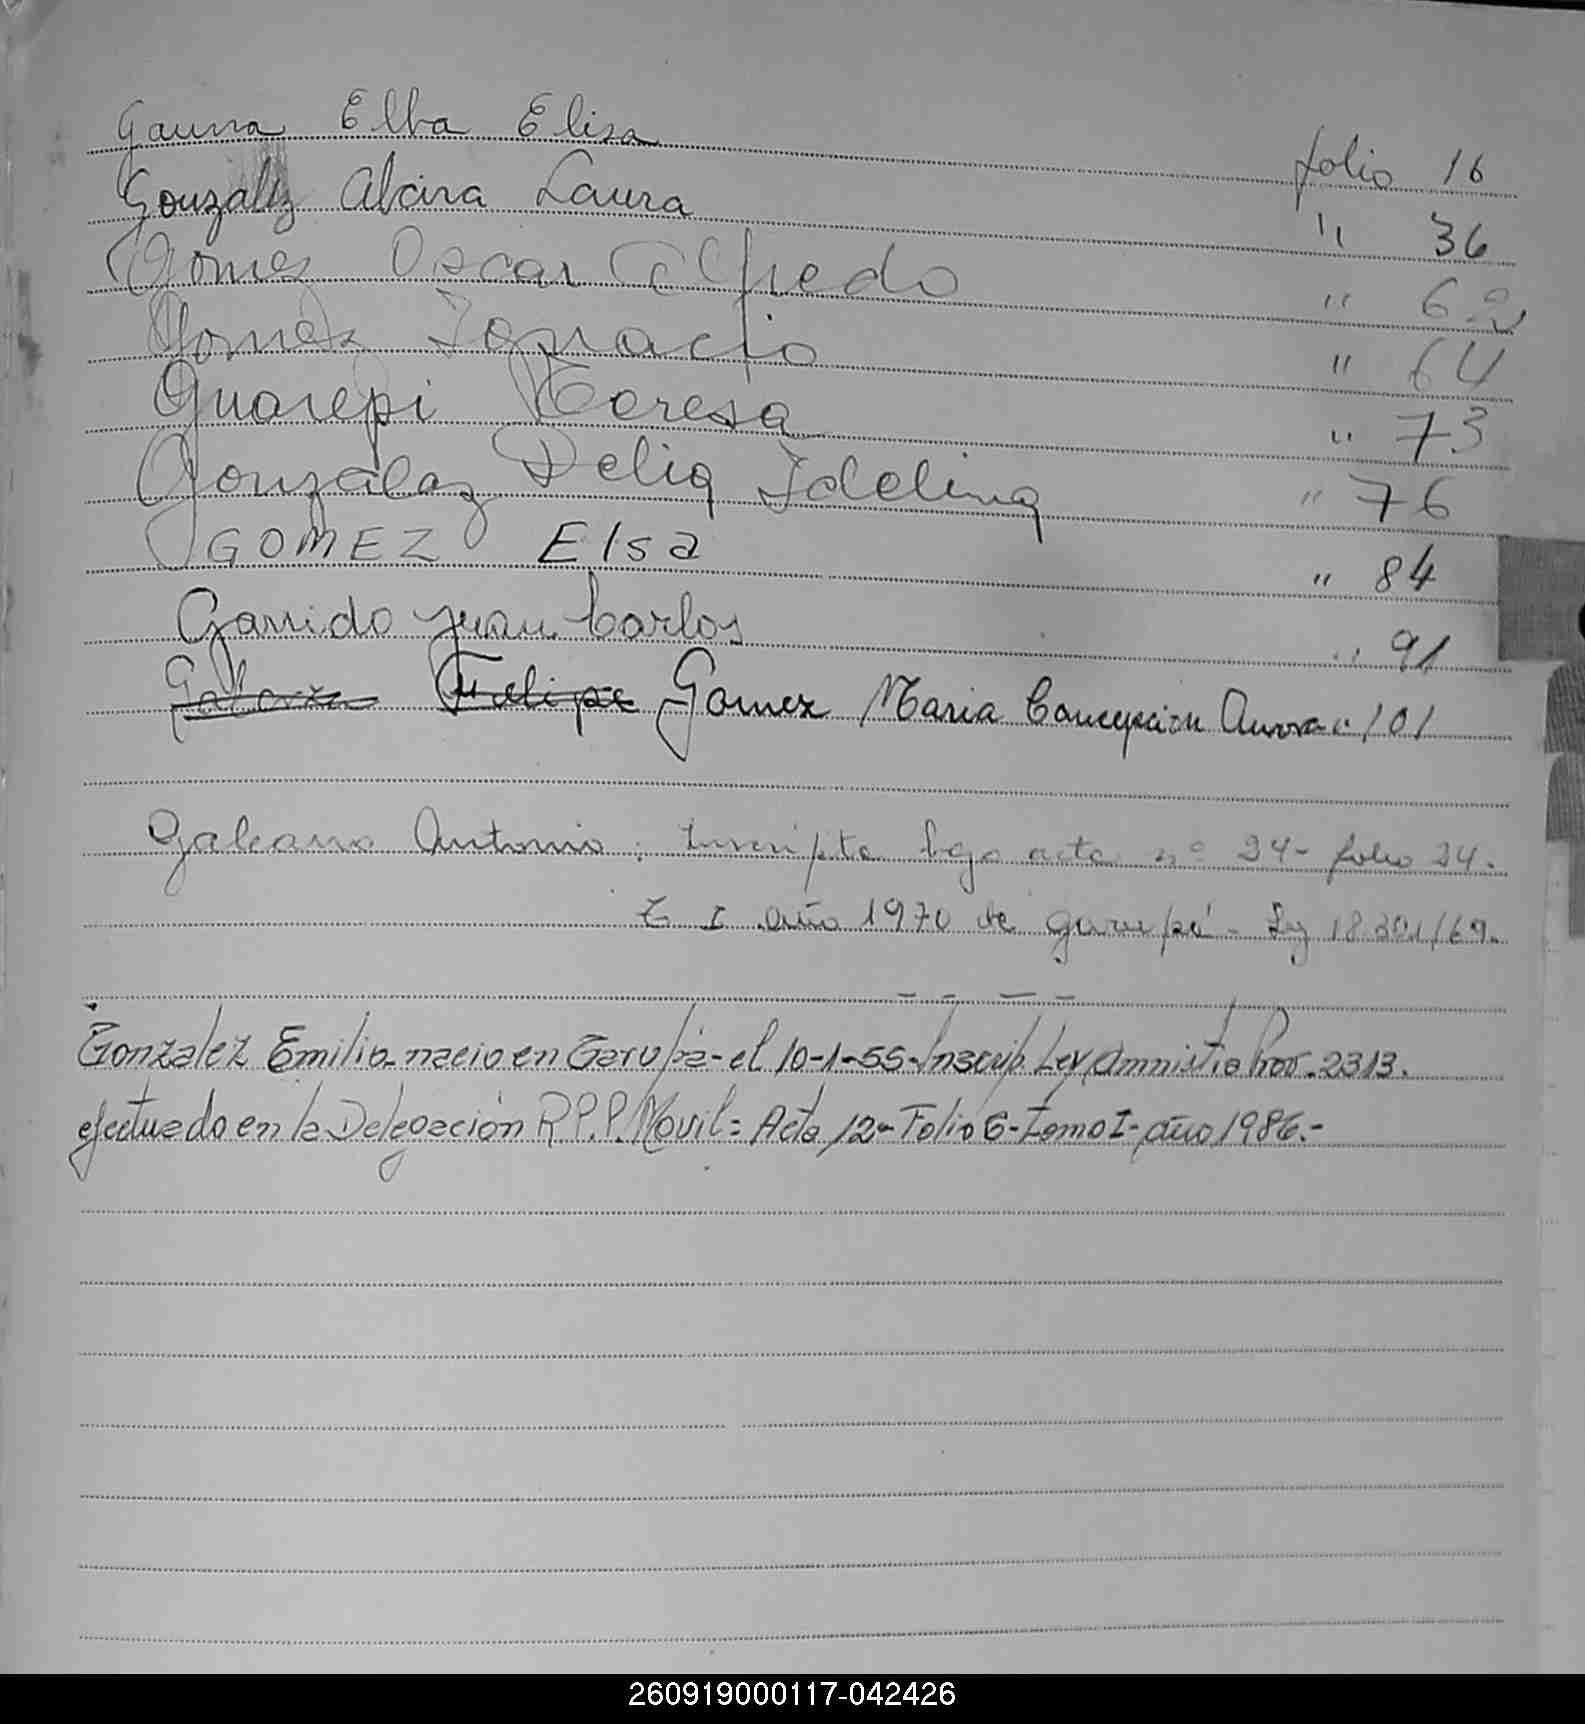 Gauna Elba Elisa folio 16
Gonzalez Alcira Laura " 36
Gomez Oscar Alfredo " 62
Gomez Ignacio " 64
Guarepi Teresa " 73
Gonzalez Delia Idelina " 76
GOMEZ Elsa " 84
Garrido Juan Carlos " 91
Galarza Felipe Gomez Maria Concepcion Aurora " 101
Galeano Antonio: Inscripta bajo acta nº 24- folio 24.
T I año 1970 de Garupá - Ley 18301/69.
Gonzalez Emilia nacio en Garupá - el 10-1-55- Inscrip. Ley Amnistia Prov. 2313.
efectuado en la Delegación R.P.P. Movil= Acta 12- Folio 6- Tomo I- año 1986.-
260919000117-042426